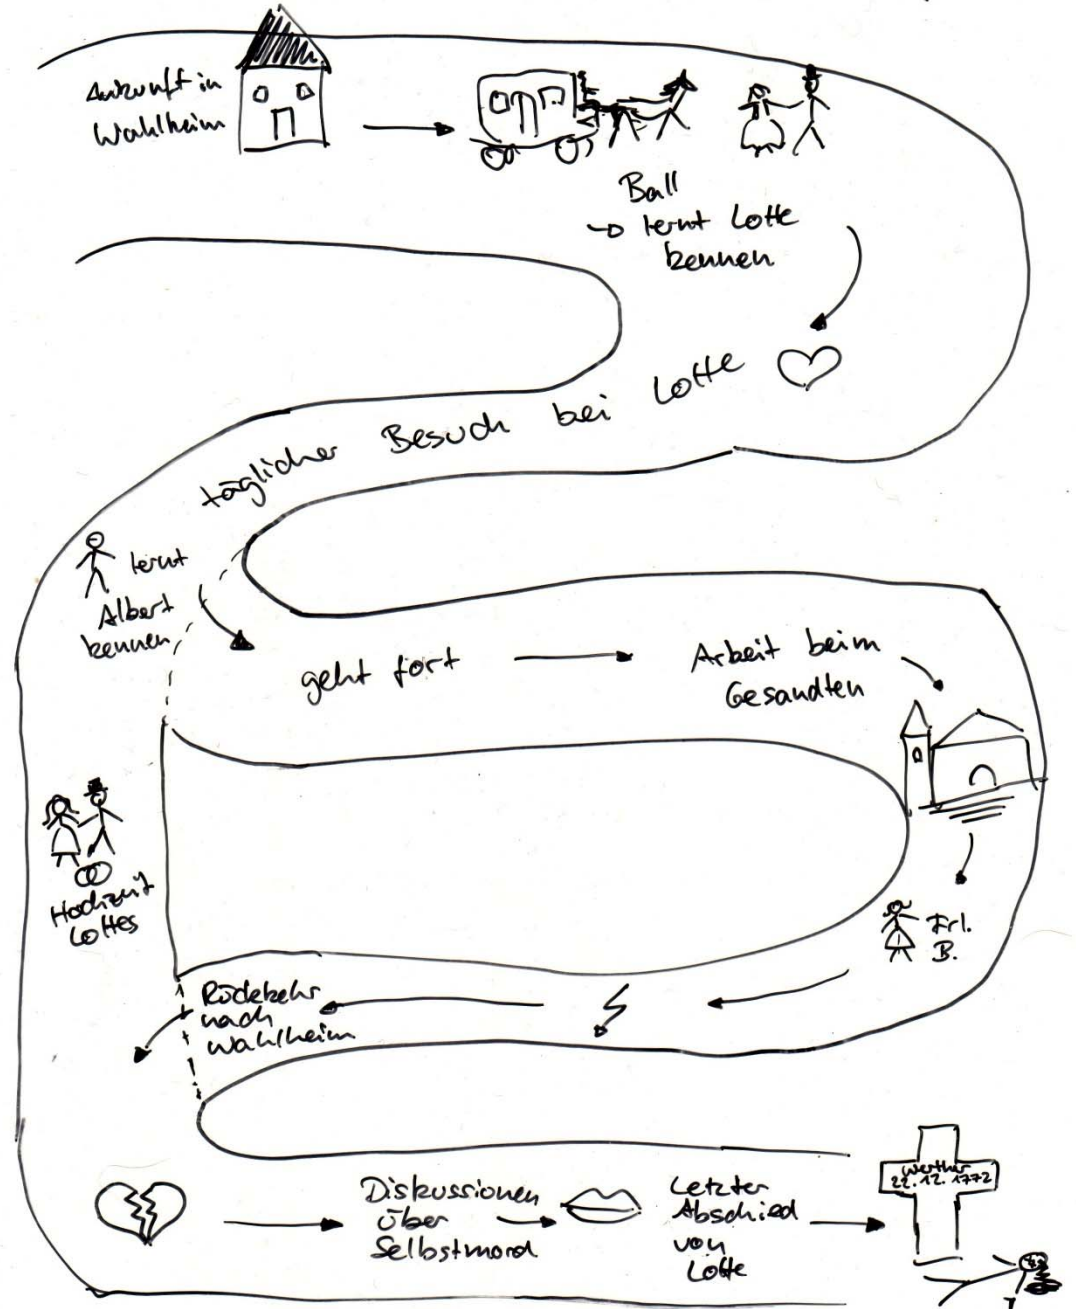 Ankunft in
Wahlheim
Ball
→ lernt Lotte
kennen
täglicher Besuch bei Lotte
lernt
Albert
kennen
geht fort
Arbeit beim
Gesandten
Frl.
B.
Hochzeit
Lottes
Rückkehr
nach
Wahlheim
Diskussionen
über
Selbstmord
Letzter
Abschied
von
Lotte
Werther
22.12.1772